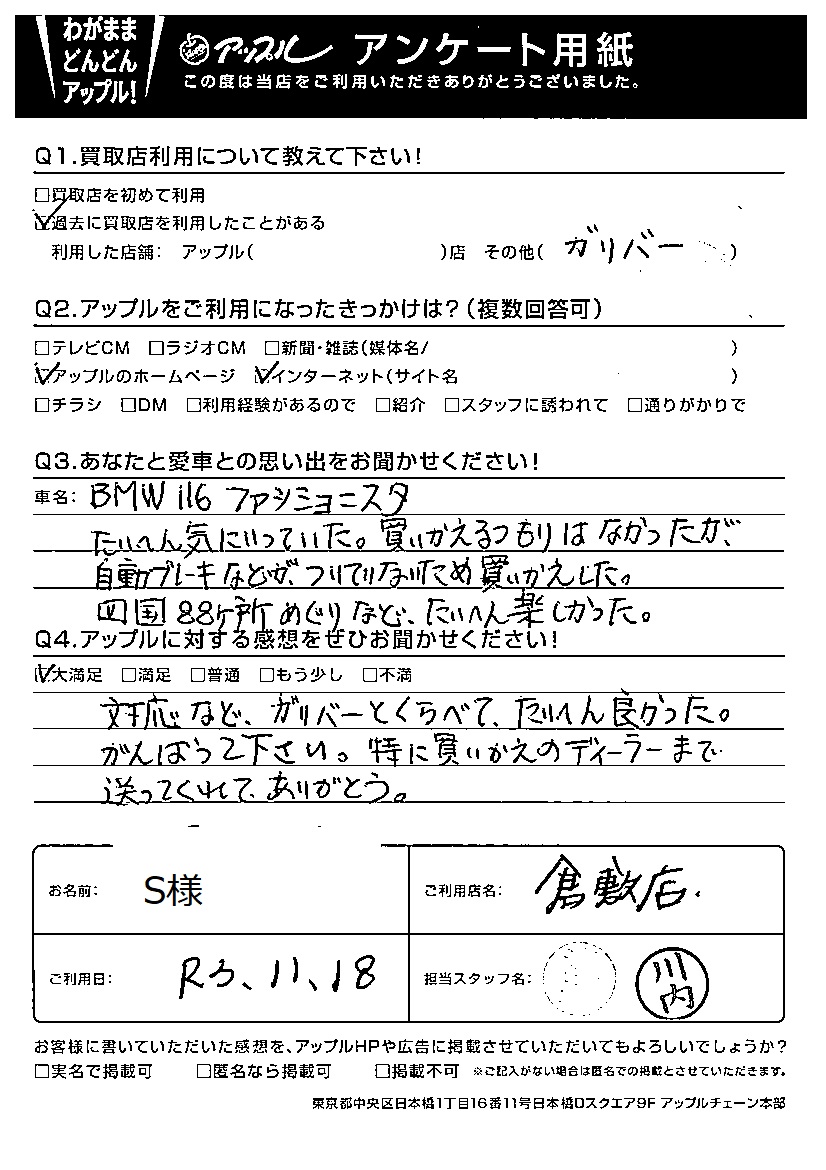 わがまま
どんどん
アップル!
アップル アンケート用紙
この度は当店をご利用いただきありがとうございました。
Q1.買取店利用について教えて下さい!
□買取店を初めて利用
☑過去に買取店を利用したことがある
利用した店舗: アップル( )店 その他( ガリバー )
Q2.アップルをご利用になったきっかけは?(複数回答可)
□テレビCM □ラジオCM □新聞・雑誌(媒体名/ )
☑アップルのホームページ ☑インターネット(サイト名 )
□チラシ □DM □利用経験があるので □紹介 □スタッフに誘われて □通りがかりで
Q3.あなたと愛車との思い出をお聞かせください!
車名: BMW 116 ファショニスタ
たいへん気にいっていた。買いかえるつもりはなかったが、
自動ブレーキなどが、ついてないため買いかえした。
四国88ケ所めぐりなど、たいへん楽しかった。
Q4.アップルに対する感想をぜひお聞かせください!
☑大満足 □満足 □普通 □もう少し □不満
対応など、ガリバーとくらべて、たいへん良かった。
がんばって下さい。特に買いかえのディーラーまで
送ってくれて、ありがとう。
お名前: S様
ご利用店名: 倉敷店.
ご利用日: R3、11、18
担当スタッフ名: 川内
お客様に書いていただいた感想を、アップルHPや広告に掲載させていただいてもよろしいでしょうか?
□実名で掲載可 □匿名なら掲載可 □掲載不可 ※ご記入がない場合は匿名での掲載とさせていただきます。
東京都中央区日本橋1丁目16番11号日本橋Dスクエア9F アップルチェーン本部